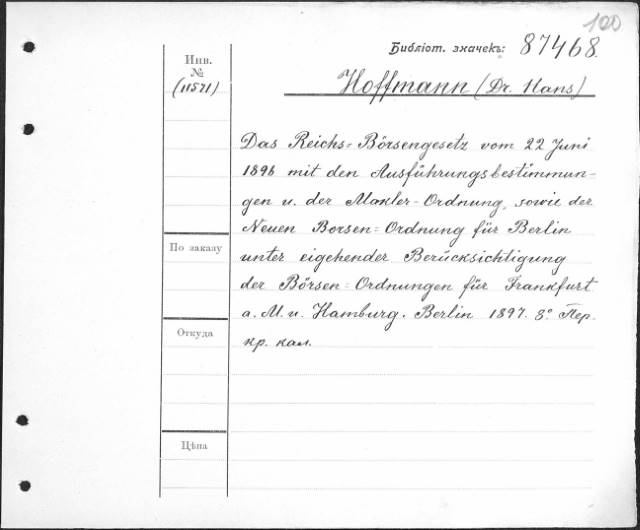 100
Библіот. значекъ: 87468.
Инв.
№
(11571)
Hoffmann (Dr. Hans)
Das Reichs-Börsengesetz vom 22 Juni
1896 mit den Ausführungsbestimmun-
gen u. der Makler-Ordnung, sowie der
Neuen Borsen=Ordnung für Berlin
unter eigehender Berücksichtigung
der Börsen=Ordnungen für Frankfurt
a. M. u. Hamburg. Berlin 1897. 8º Пер.
кр. кал.
По заказу
Откуда
Цѣна